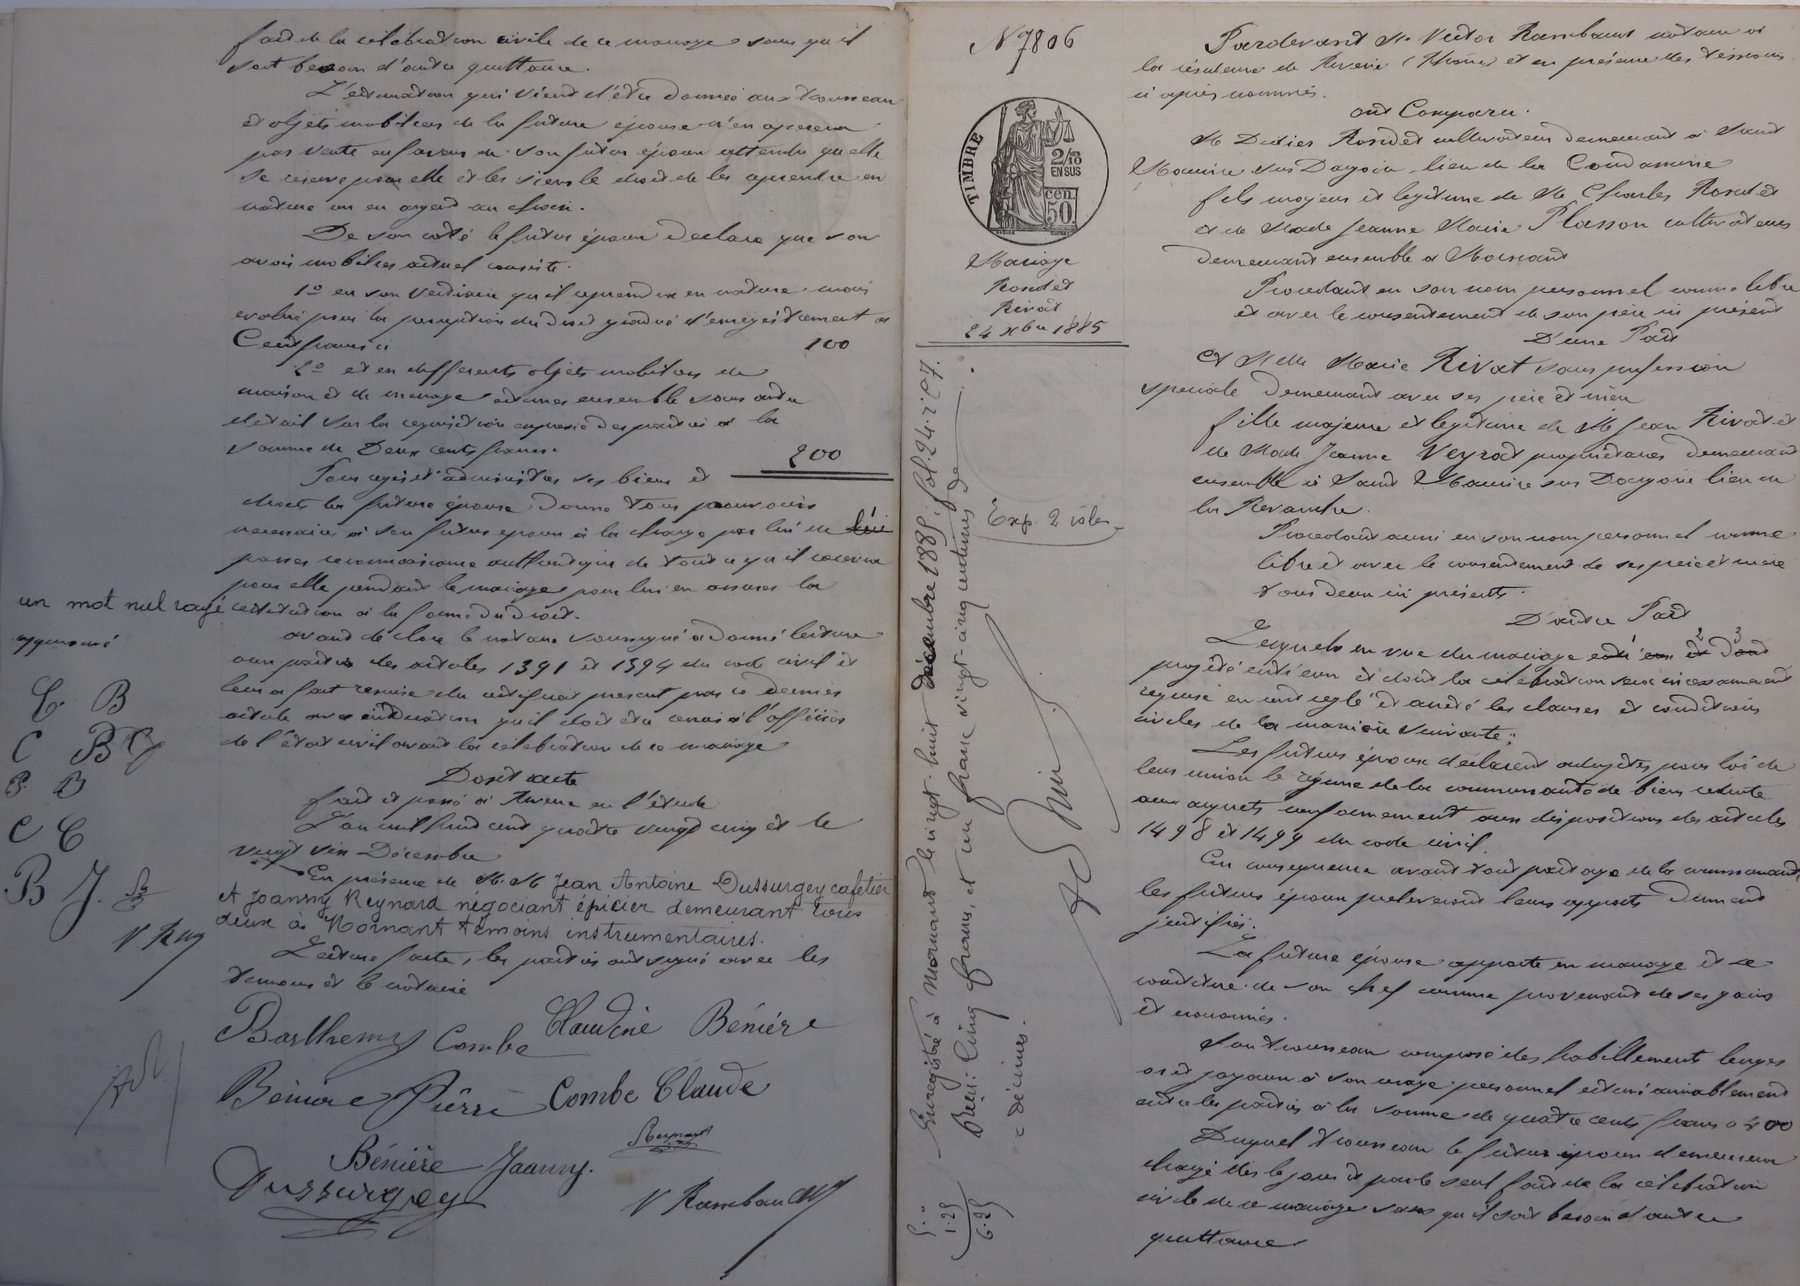 fait de la célébration civile de ce mariage sans qu'il
soit besoin d'autre quittance.
L'estimation qui vient d'être donnée aux trousseau
et objets mobiliers de la future épouse n'en opérera
pas vente en faveur de son futur époux attendu qu'elle
se réserve pour elle et les siens le droit de les reprendre en
nature ou en argent au choix.
De son coté le futur époux déclare que son
avoir mobilier actuel consiste.
1º en son vestiaire qu'il reprendra en nature mais
évalué pour la perception du droit gradué d'enregistrement à
Cent francs ci 100
2º et en différents objets mobiliers de
maison et de ménage estimés ensemble sans autre
détail sur la réquisition expresse des parties à la
somme de Deux cents francs. 200
Pour régir et administrer ses biens et
droits la future épouse donne tous pouvoirs
nécessaires à son futur époux à la charge par lui de
passer reconnaissance authentique de tout ce qu'il recevra
pour elle pendant le mariage pour lui en assurer la
restitution à la forme du droit.
un mot nul rayé
approuvé
avant de clore le notaire soussigné a donné lecture
aux parties des articles 1391 et 1394 du code civil et
leur a fait remise du certificat prescrit par ce dernier
article avec indication qu'il doit être remis à l'officier
de l'état civil avant la célébration de ce mariage
C. B
C B
P. B
C C
B J.
V Ram
Dont acte
fait et passé à Riverie en l'étude
L'an mil huit cent quatre vingt cinq et le
vingt un Décembre
En présence de M. M Jean Antoine Dussurgey cafetier
et Joanny Reynard négociant épicier demeurant tous
deux à Mornant témoins instrumentaires.
Lecture faite, les parties ont signé avec les
témoins et le notaire
Barthemy Combe Claudine Bénière
Bénière Pierre Combe Claude
Reynard
Bénière Joanny.
Dussurgey
V Rambaud
N 7806
TIMBRE
2/10
EN SUS
cen.
50
Mariage
Rondet
Rivat
24 Xbre 1885
Exp. 2 rôles
Enregistré à Mornant le vingt-huit décembre 1885. fol. 94. r. C 7.
Reçu: cinq francs, et un franc vingt-cinq centimes de
décimes.
5.,,
1.25
6.25
Pardevant Me Victor Rambaud notaire à
la résidence de Riverie (Rhone) et en présence des témoins
ci après nommés.
ont Comparu.
M Didier Rondet cultivateur demeurant à Saint
Maurice sur Dargoire lieu de la Condamine
fils majeur et légitime de M Charles Rondet
et de Made Jeanne Marie Plasson cultivateurs
demeurant ensemble à Mornant
Procédant en son nom personnel comme libre
et avec le consentement de son père ici présent
D'une Part
Et Melle Marie Rivat sans profession
spéciale demeurant avec ses père et mère
fille majeure et légitime de M Jean Rivat et
de Made Jeanne Veyrat propriétaires demeurant
ensemble à Saint Maurice sur Dargoire lieu de
la Revanche.
Procédant aussi en son nom personnel comme
libre et avec le consentement de ses père et mère
tous deux ici présents.
D'autre Part
Lesquels en vue du mariage 2 3
projeté entre eux et dont la célébration sera incessamment
requise en ont réglé et arrêté les clauses et conditions
civiles de la manière suivante:
Les futurs époux déclarent adopter pour loi de
leur union le régime de la communauté de biens réduite
aux acquets conformément aux dispositions des articles
1498 et 1499 du code civil.
En conséquence avant tout partage de la communauté
les futurs époux prélèveront leurs apports dument
justifiés.
La future épouse apporte en mariage et se
constitue de son chef comme provenant de ses gains
et économies.
Son trousseau composé des habillements linges
or et joyaux à son usage personnel estimé amiablement
entre les parties à la somme de quatre cents francs 400
Duquel trousseau le futur époux demeurera
chargé dès le jour et par le seul fait de la célébration
civile de ce mariage sans qu'il soit besoin d'autre
quittance